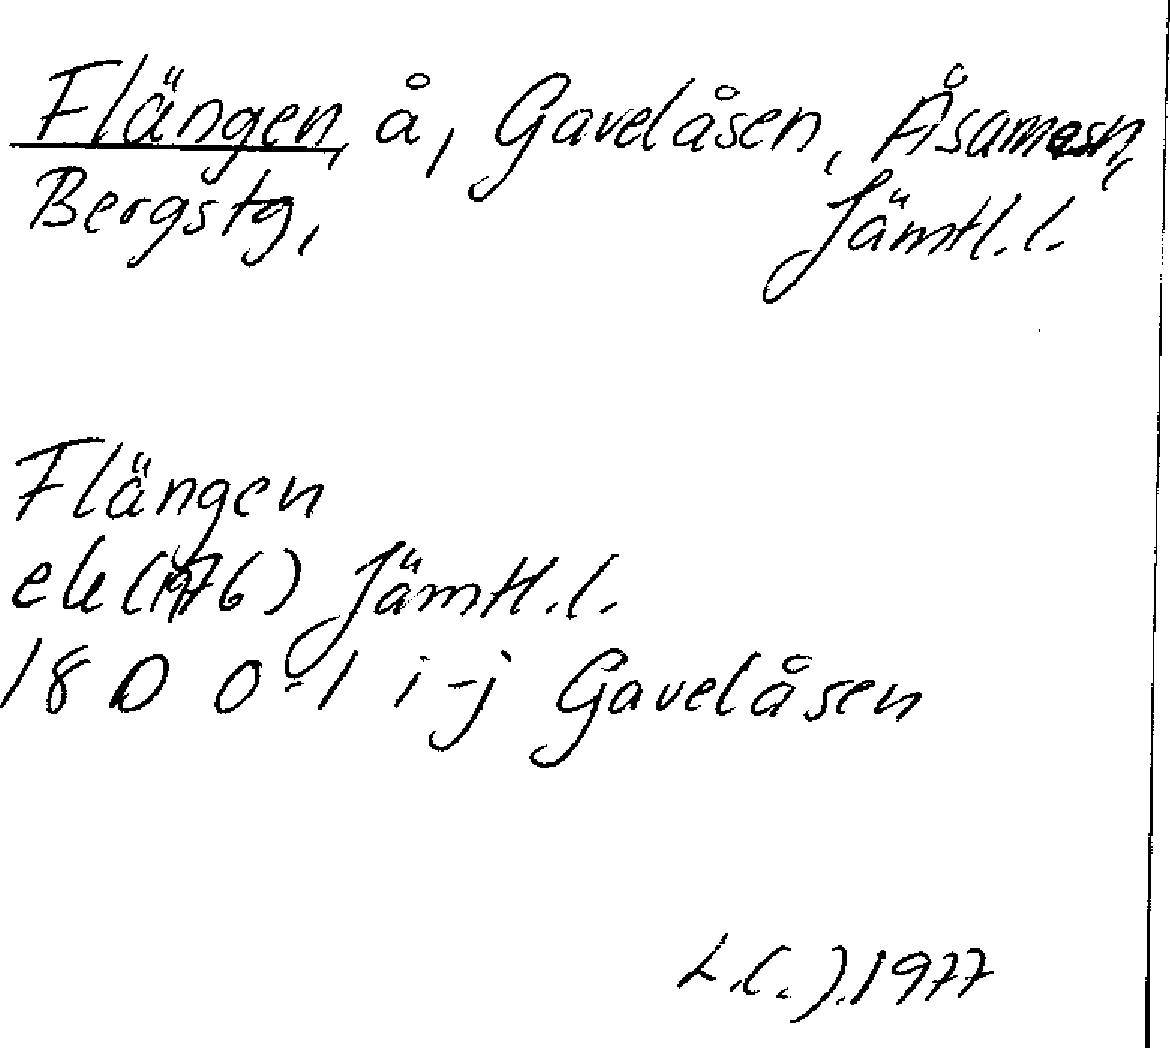 Flängen, å, Gavelåsen,
Bergstg, Jämtl. l.
Flängen
ek (1976) Jämtl. l.
18 D 0-1 i-j Gavelåsen
1977